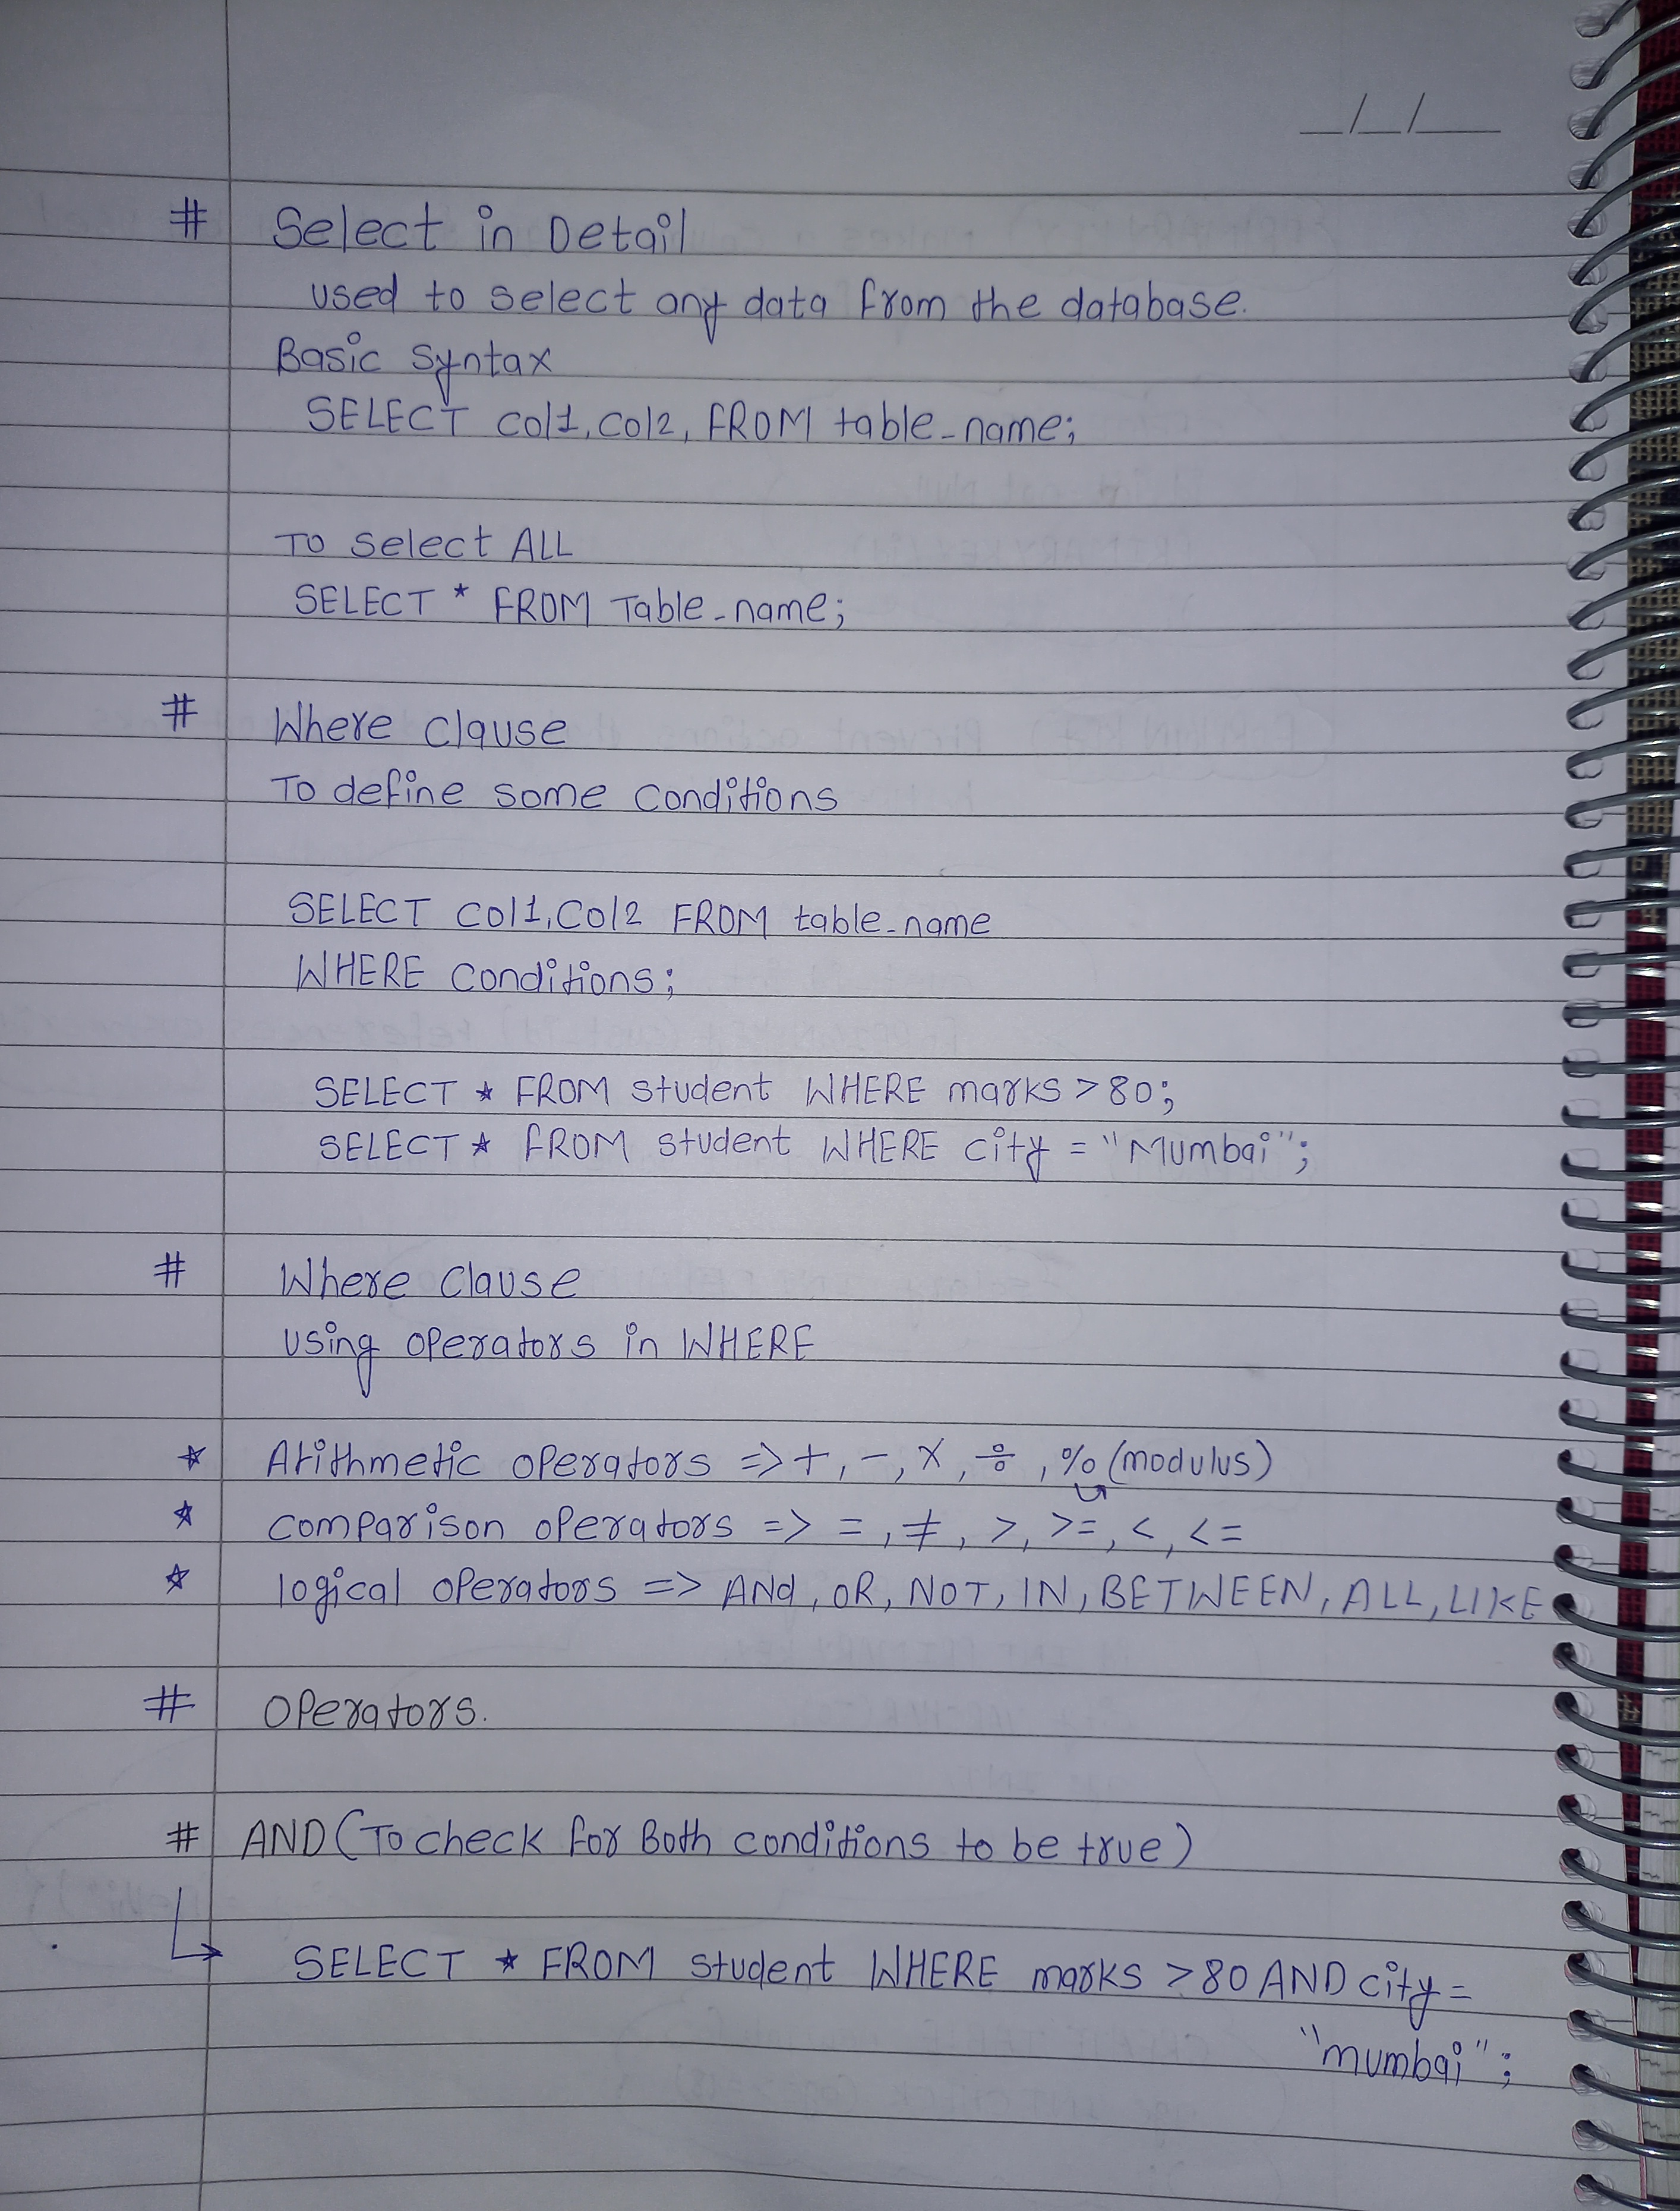 _/_/__
# Select in Detail
used to select any data from the database.
Basic Syntax
SELECT col1, col2, FROM table_name;
To select ALL
SELECT * FROM Table_name;
# Where Clause
To define some conditions
SELECT col1, col2 FROM table_name
WHERE conditions;
SELECT * FROM student WHERE marks > 80;
SELECT * FROM student WHERE city = "Mumbai";
# Where Clause
using operators in WHERE
* Arithmetic operators => +, -, x, ÷, % (modulus)
* comparison operators => =, ≠, >, >=, <, <=
* logical operators => ANd, OR, NOT, IN, BETWEEN, ALL, LIKE
# Operators.
# AND (To check for Both conditions to be true)
↳ SELECT * FROM student WHERE marks > 80 AND city =
"mumbai";